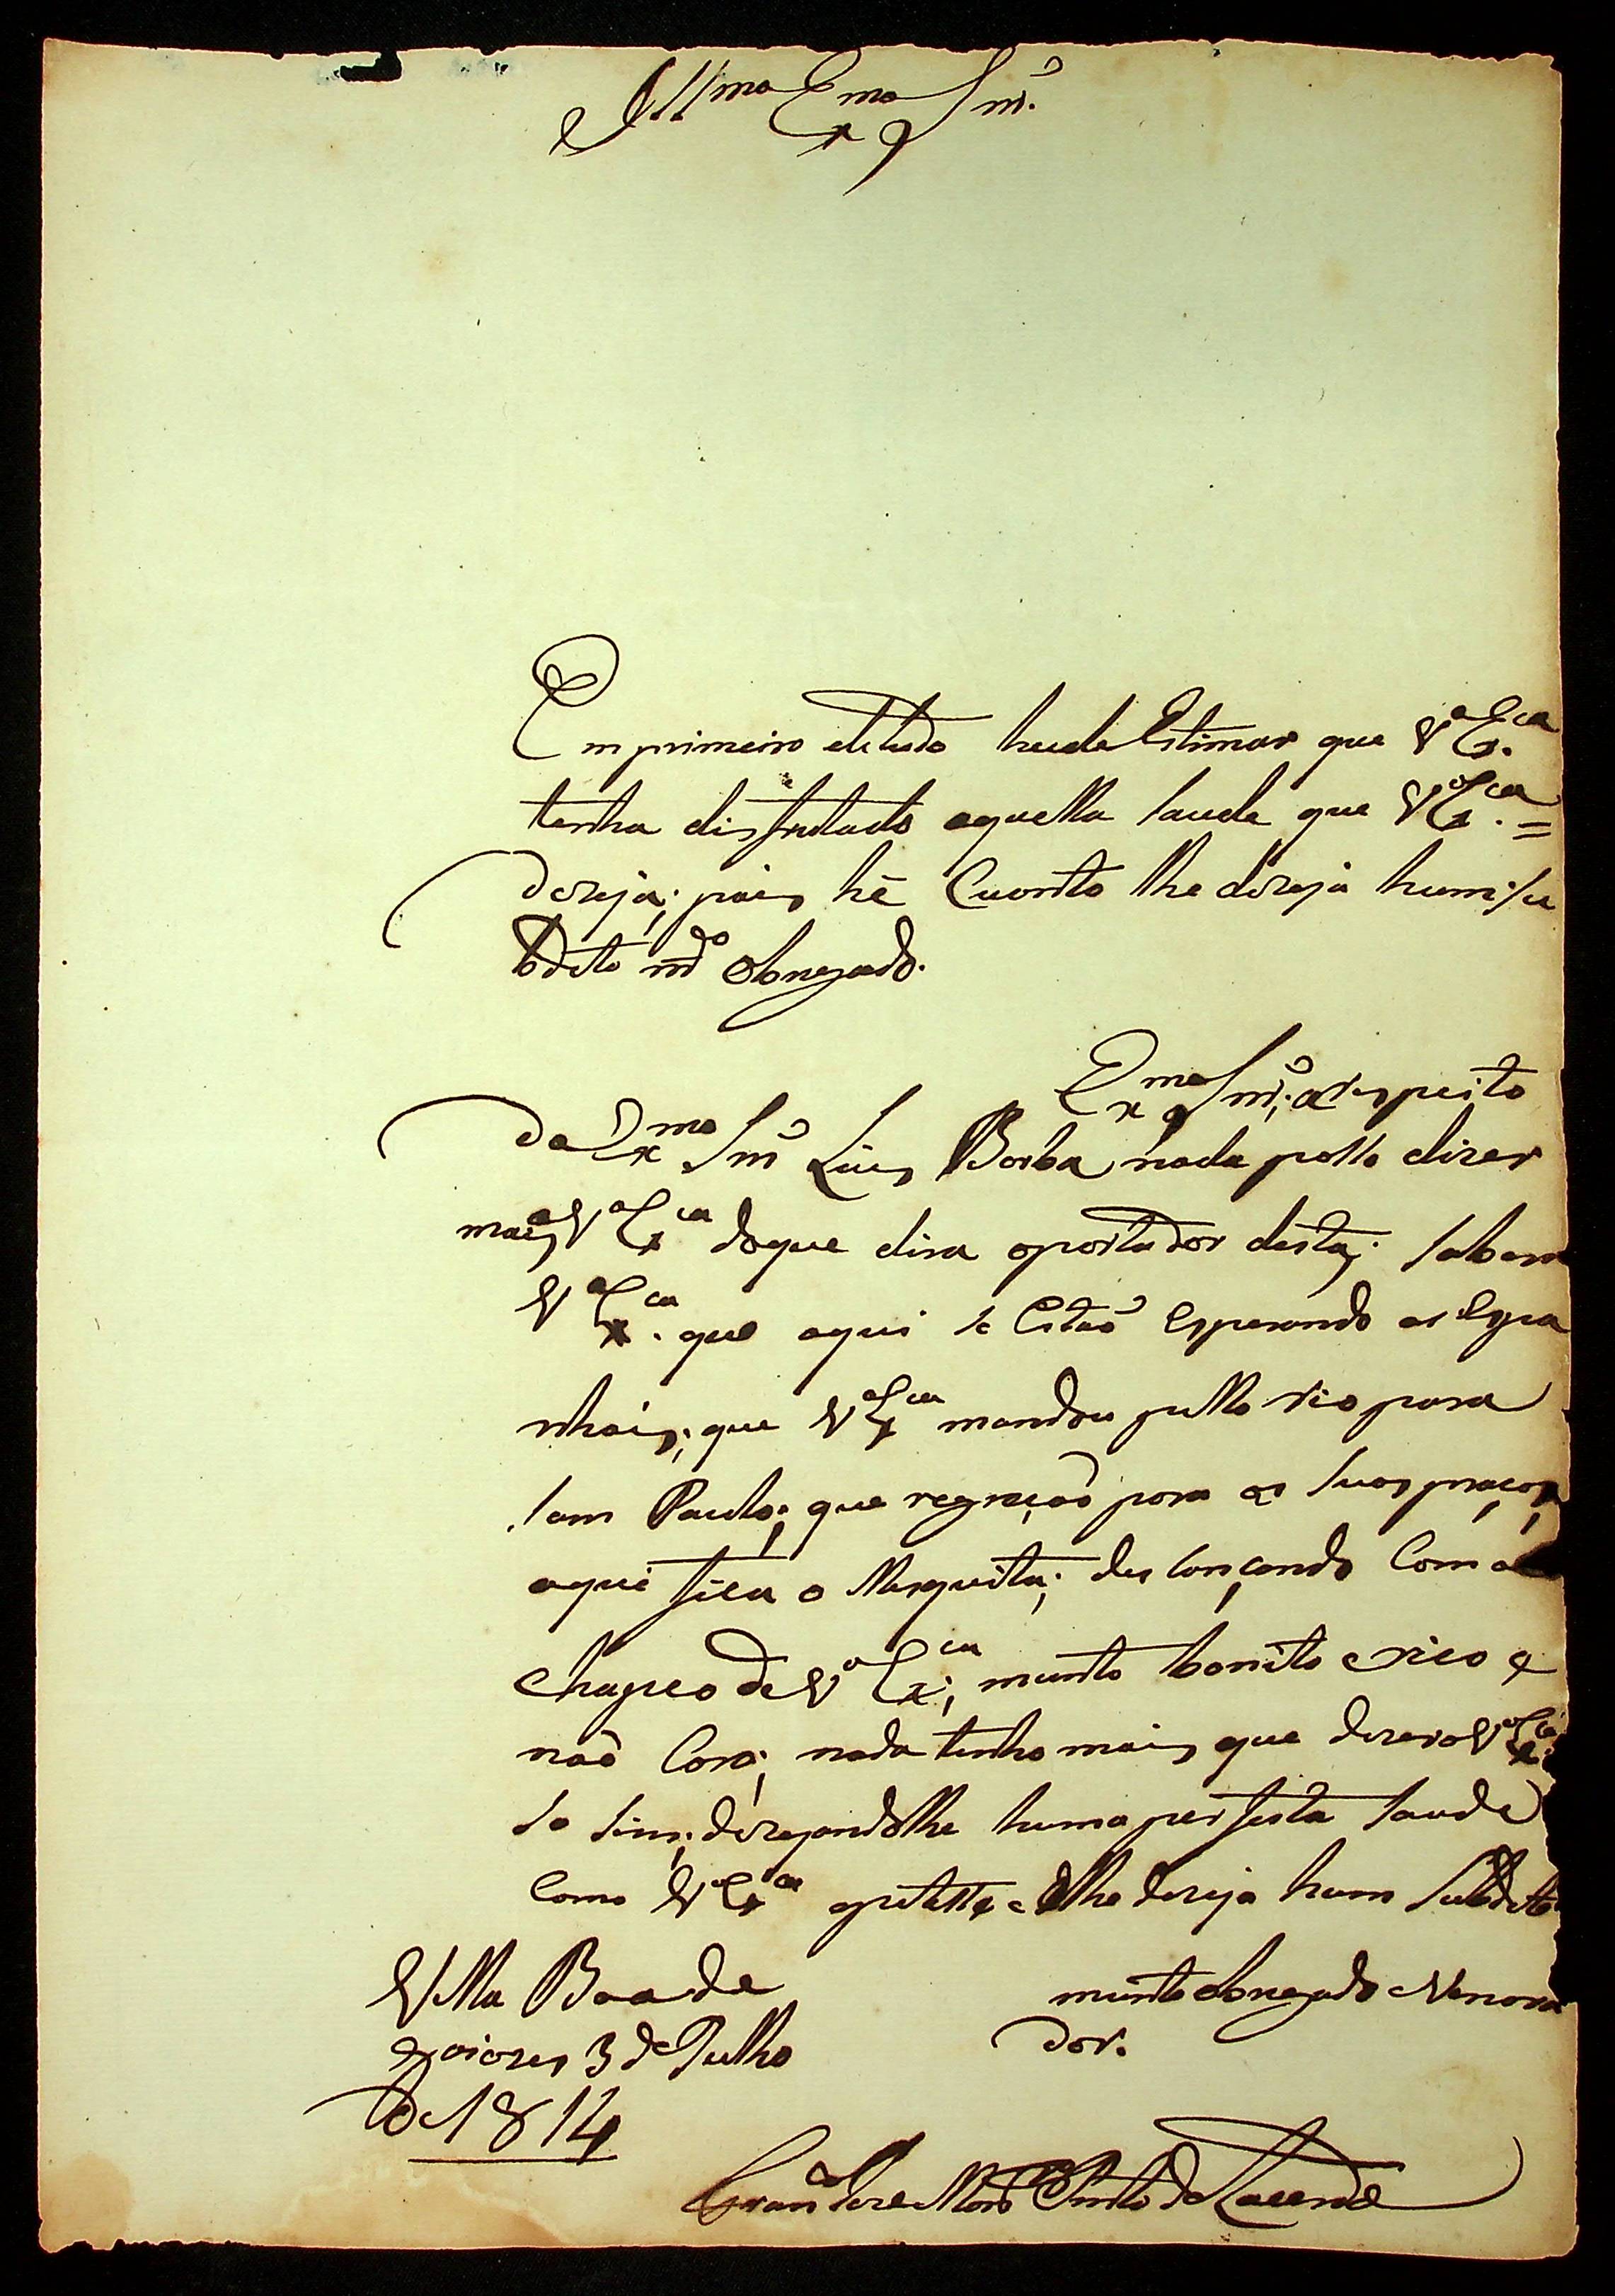 Illmo Exmo Snr.
Em primeiro de tudo hei de Estimar que Va Exca.
tenha disfrutado aquella saude que Va Exca. =
deseja; pois hé Cuanto lhe deseja hum su
bdito mdo obrigado.
Exmo Snr; a respeito
do Exmo Snr Luis Borba nada posso dizer
mais a Va Exca do que dira o portador desta; sabera
Va Exca. que aqui se Estaõ Esperando as Espa
nhois; que Va Exca mandou pello rio para
sam Paulo; que regraçaõ para as suas praças,
aqui fica o Mesquita; descançando Com o
chapeo de Va Exca; muito bonito e rico e
naõ Cora; nada tenho mais que dizer a Va Exca.
so sim; desejandolhe huma perfeita saude
Como Va Exca apetesse e lhe deseja hum Subdito
Villa Boa de
Goiazes 3 de Julho
de 1814
muito obrigado e Venora
dor.
Pinto de